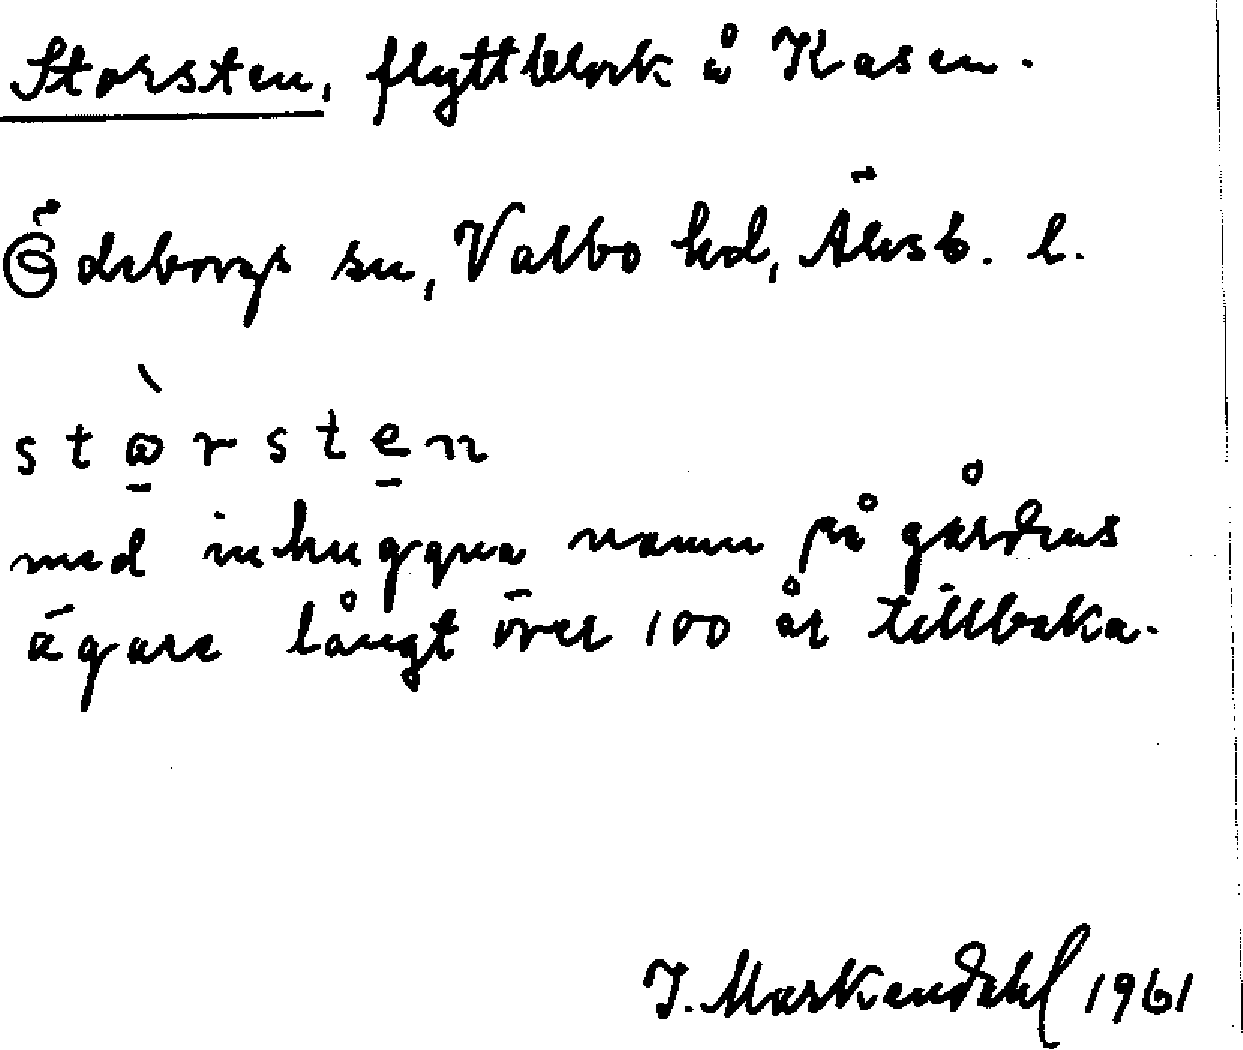 Storsten, flyttblock å Kasen.
Ödeborgs sn, Valbo hd, Älvsb. l.
stɷ̠̀rste̠n
med inhuggna namn på gårdens
ägare långt över 100 år tillbaka.
J. Markendahl 1961